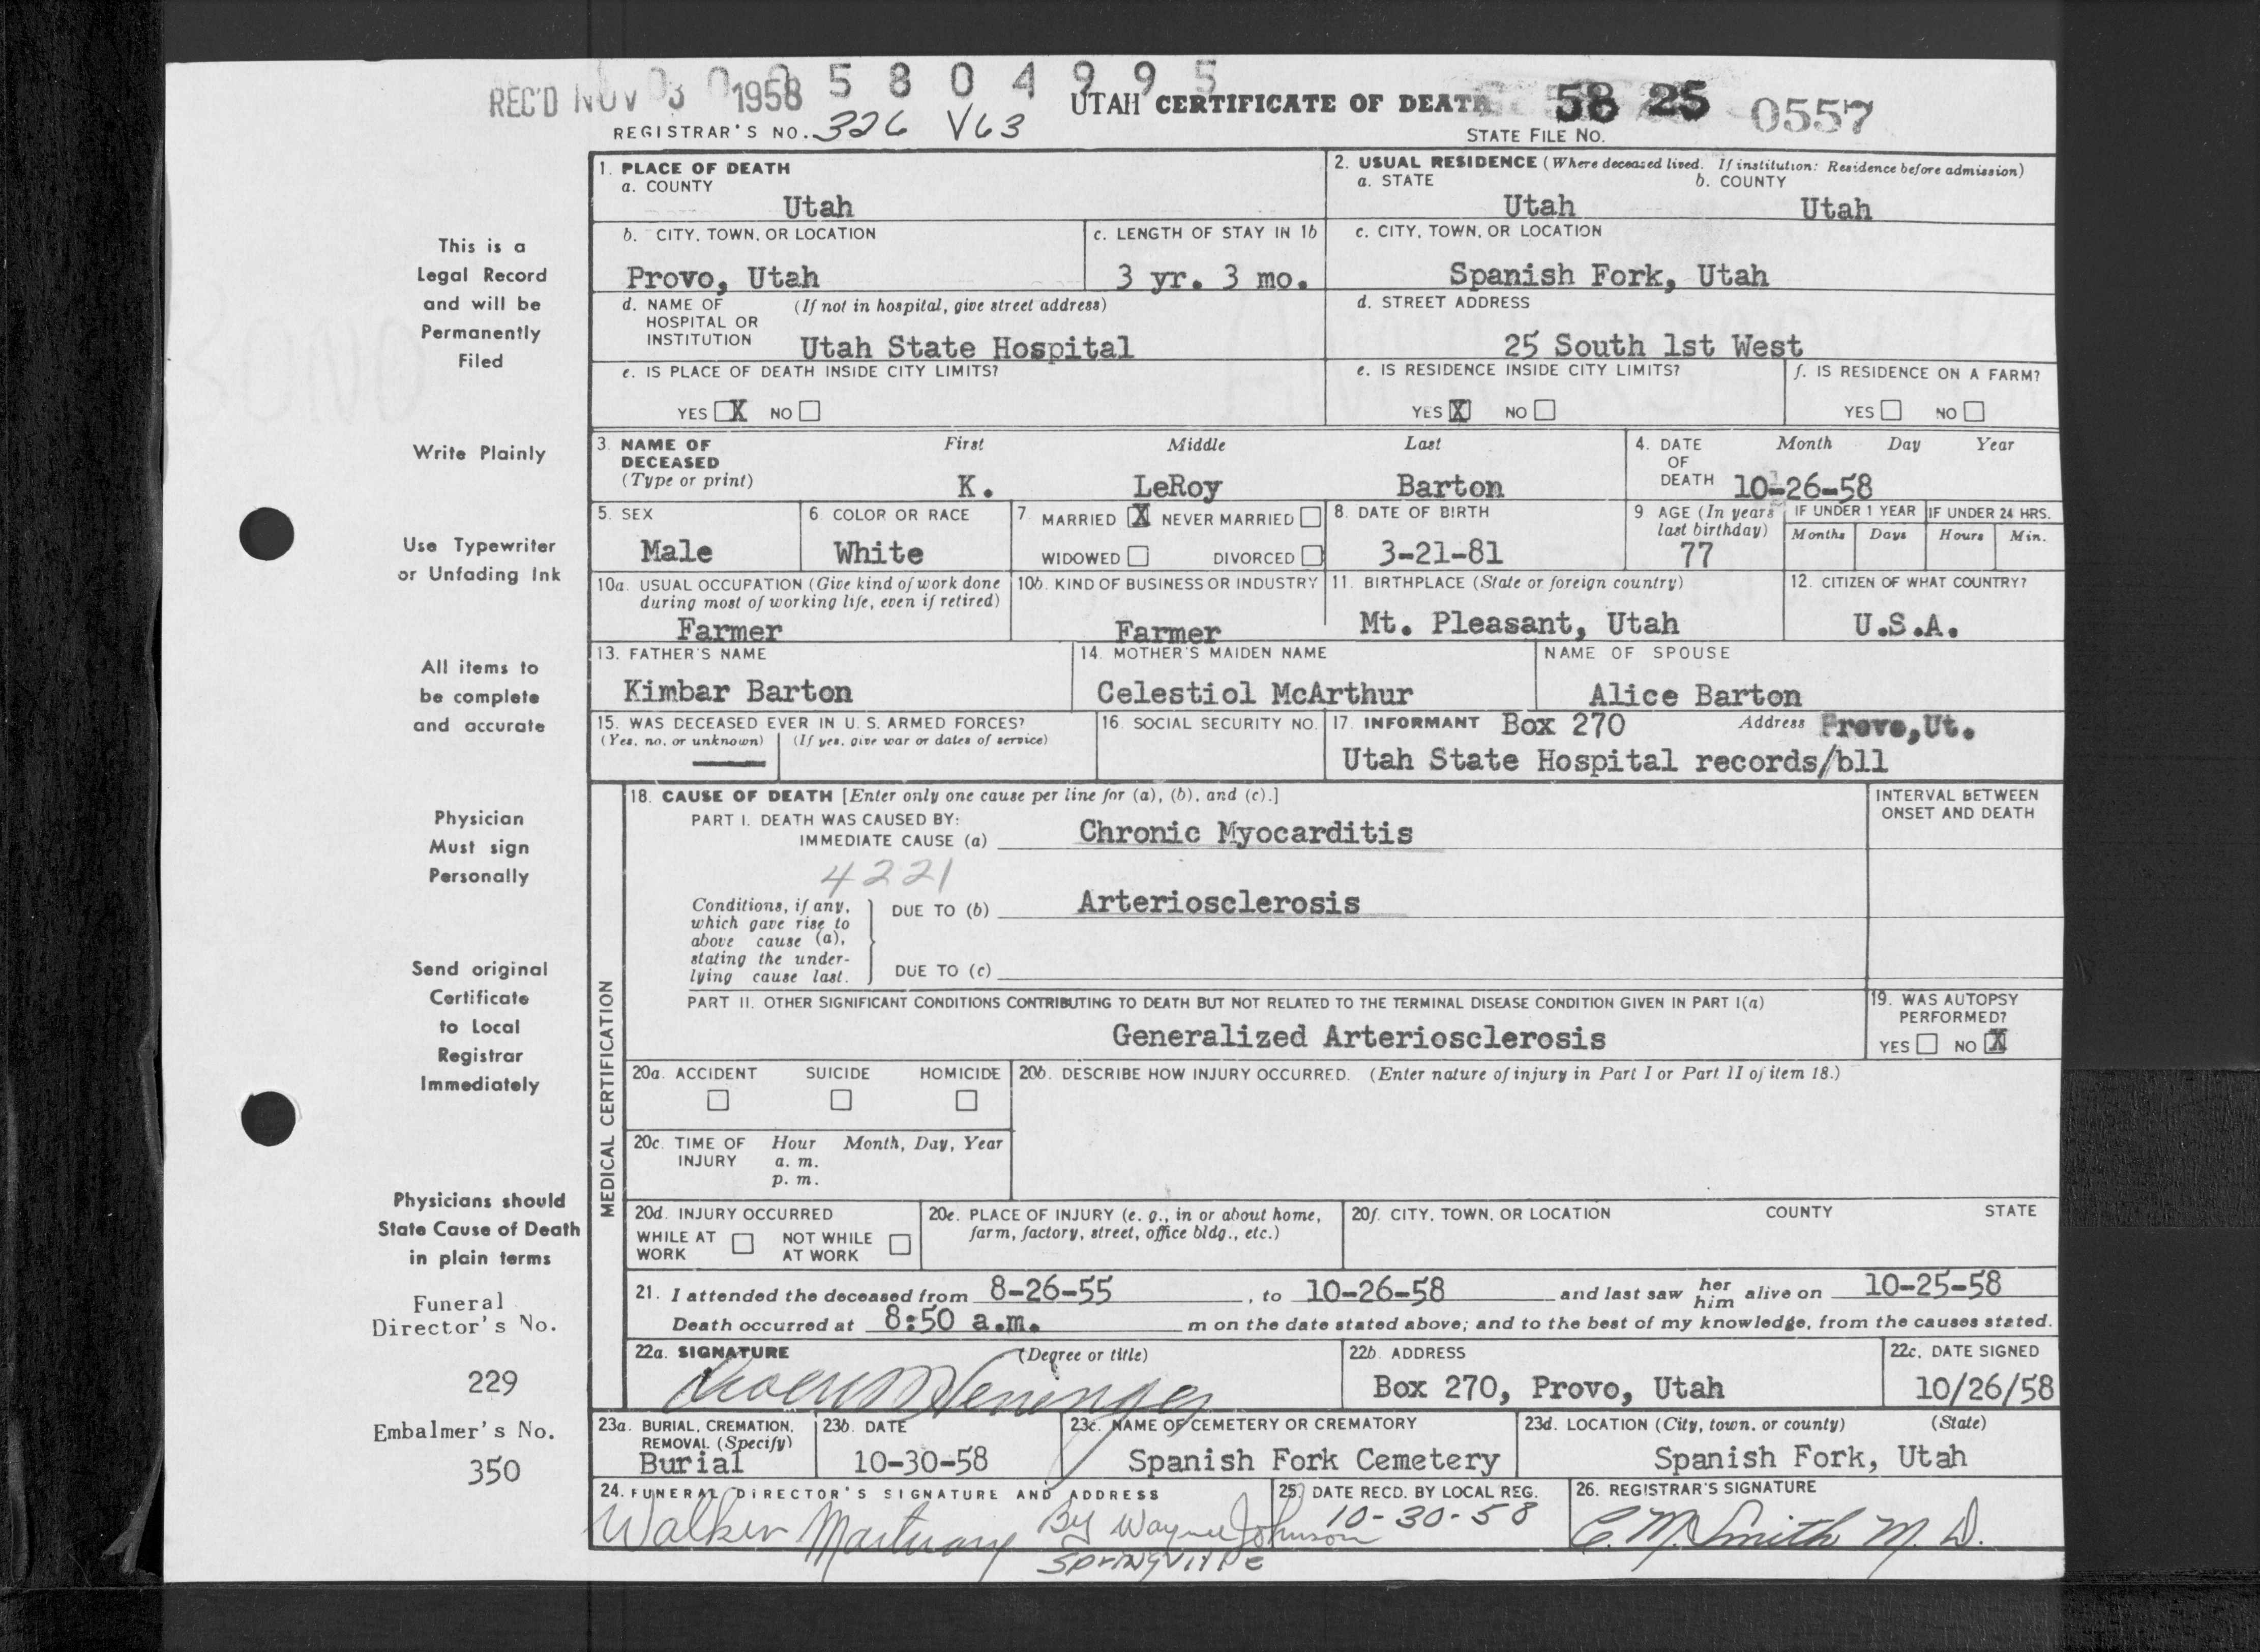 REC'D NOV 03 1958 0 0 5 8 0 4 9 9 5
UTAH CERTIFICATE OF DEATH 58 25 0557
REGISTRAR'S NO. 326 V63
STATE FILE NO.
This is a
Legal Record
and will be
Permanently
Filed
Write Plainly
Use Typewriter
or Unfading Ink
All items to
be complete
and accurate
Physician
Must sign
Personally
Send original
Certificate
to Local
Registrar
Immediately
Physicians should
State Cause of Death
in plain terms
Funeral
Director's No.
229
Embalmer's No.
350
1. PLACE OF DEATH
a. COUNTY
Utah
2. USUAL RESIDENCE (Where deceased lived. If institution: Residence before admission)
a. STATE b. COUNTY
Utah Utah
b. CITY, TOWN, OR LOCATION
Provo, Utah
c. LENGTH OF STAY IN 1b
3 yr. 3 mo.
c. CITY, TOWN, OR LOCATION
Spanish Fork, Utah
d. NAME OF (If not in hospital, give street address)
HOSPITAL OR
INSTITUTION Utah State Hospital
d. STREET ADDRESS
25 South 1st West
e. IS PLACE OF DEATH INSIDE CITY LIMITS?
YES X NO
e. IS RESIDENCE INSIDE CITY LIMITS?
YES X NO
f. IS RESIDENCE ON A FARM?
YES NO
3. NAME OF First Middle Last
DECEASED
(Type or print) K. LeRoy Barton
4. DATE Month Day Year
OF
DEATH 10-26-58
5. SEX
Male
6. COLOR OR RACE
White
7. MARRIED X NEVER MARRIED
WIDOWED DIVORCED
8. DATE OF BIRTH
3-21-81
9 AGE (In years
last birthday)
77
IF UNDER 1 YEAR IF UNDER 24 HRS.
Months Days Hours Min.
10a. USUAL OCCUPATION (Give kind of work done
during most of working life, even if retired)
Farmer
10b. KIND OF BUSINESS OR INDUSTRY
Farmer
11. BIRTHPLACE (State or foreign country)
Mt. Pleasant, Utah
12. CITIZEN OF WHAT COUNTRY?
U.S.A.
13. FATHER'S NAME
Kimbar Barton
14. MOTHER'S MAIDEN NAME
Celestiol McArthur
NAME OF SPOUSE
Alice Barton
15. WAS DECEASED EVER IN U. S. ARMED FORCES?
(Yes, no, or unknown) (If yes, give war or dates of service)
16. SOCIAL SECURITY NO.
17. INFORMANT Box 270 Address Provo,Ut.
Utah State Hospital records/bll
MEDICAL CERTIFICATION
18. CAUSE OF DEATH [Enter only one cause per line for (a), (b), and (c).]
PART I. DEATH WAS CAUSED BY:
IMMEDIATE CAUSE (a) Chronic Myocarditis
INTERVAL BETWEEN
ONSET AND DEATH
4221
Conditions, if any,
which gave rise to
above cause (a),
stating the under-
lying cause last.
DUE TO (b) Arteriosclerosis
DUE TO (c)
PART II. OTHER SIGNIFICANT CONDITIONS CONTRIBUTING TO DEATH BUT NOT RELATED TO THE TERMINAL DISEASE CONDITION GIVEN IN PART I(a)
Generalized Arteriosclerosis
19. WAS AUTOPSY
PERFORMED?
YES NO X
20a. ACCIDENT SUICIDE HOMICIDE
20b. DESCRIBE HOW INJURY OCCURRED. (Enter nature of injury in Part I or Part II of item 18.)
20c. TIME OF Hour Month, Day, Year
INJURY a. m.
p. m.
20d. INJURY OCCURRED
WHILE AT NOT WHILE
WORK AT WORK
20e. PLACE OF INJURY (e. g., in or about home,
farm, factory, street, office bldg., etc.)
20f. CITY, TOWN, OR LOCATION COUNTY STATE
21. I attended the deceased from 8-26-55, to 10-26-58 and last saw her him alive on 10-25-58
Death occurred at 8:50 a.m. m on the date stated above; and to the best of my knowledge, from the causes stated.
22a. SIGNATURE (Degree or title)
Heninger
22b. ADDRESS
Box 270, Provo, Utah
22c. DATE SIGNED
10/26/58
23a. BURIAL, CREMATION,
REMOVAL (Specify)
Burial
23b. DATE
10-30-58
23c. NAME OF CEMETERY OR CREMATORY
Spanish Fork Cemetery
23d. LOCATION (City, town, or county) (State)
Spanish Fork, Utah
24. FUNERAL DIRECTOR'S SIGNATURE AND ADDRESS
Walker Mortuary By Wayne Johnson
Springville
25. DATE RECD. BY LOCAL REG.
10-30-58
26. REGISTRAR'S SIGNATURE
C. M. Smith M. D.